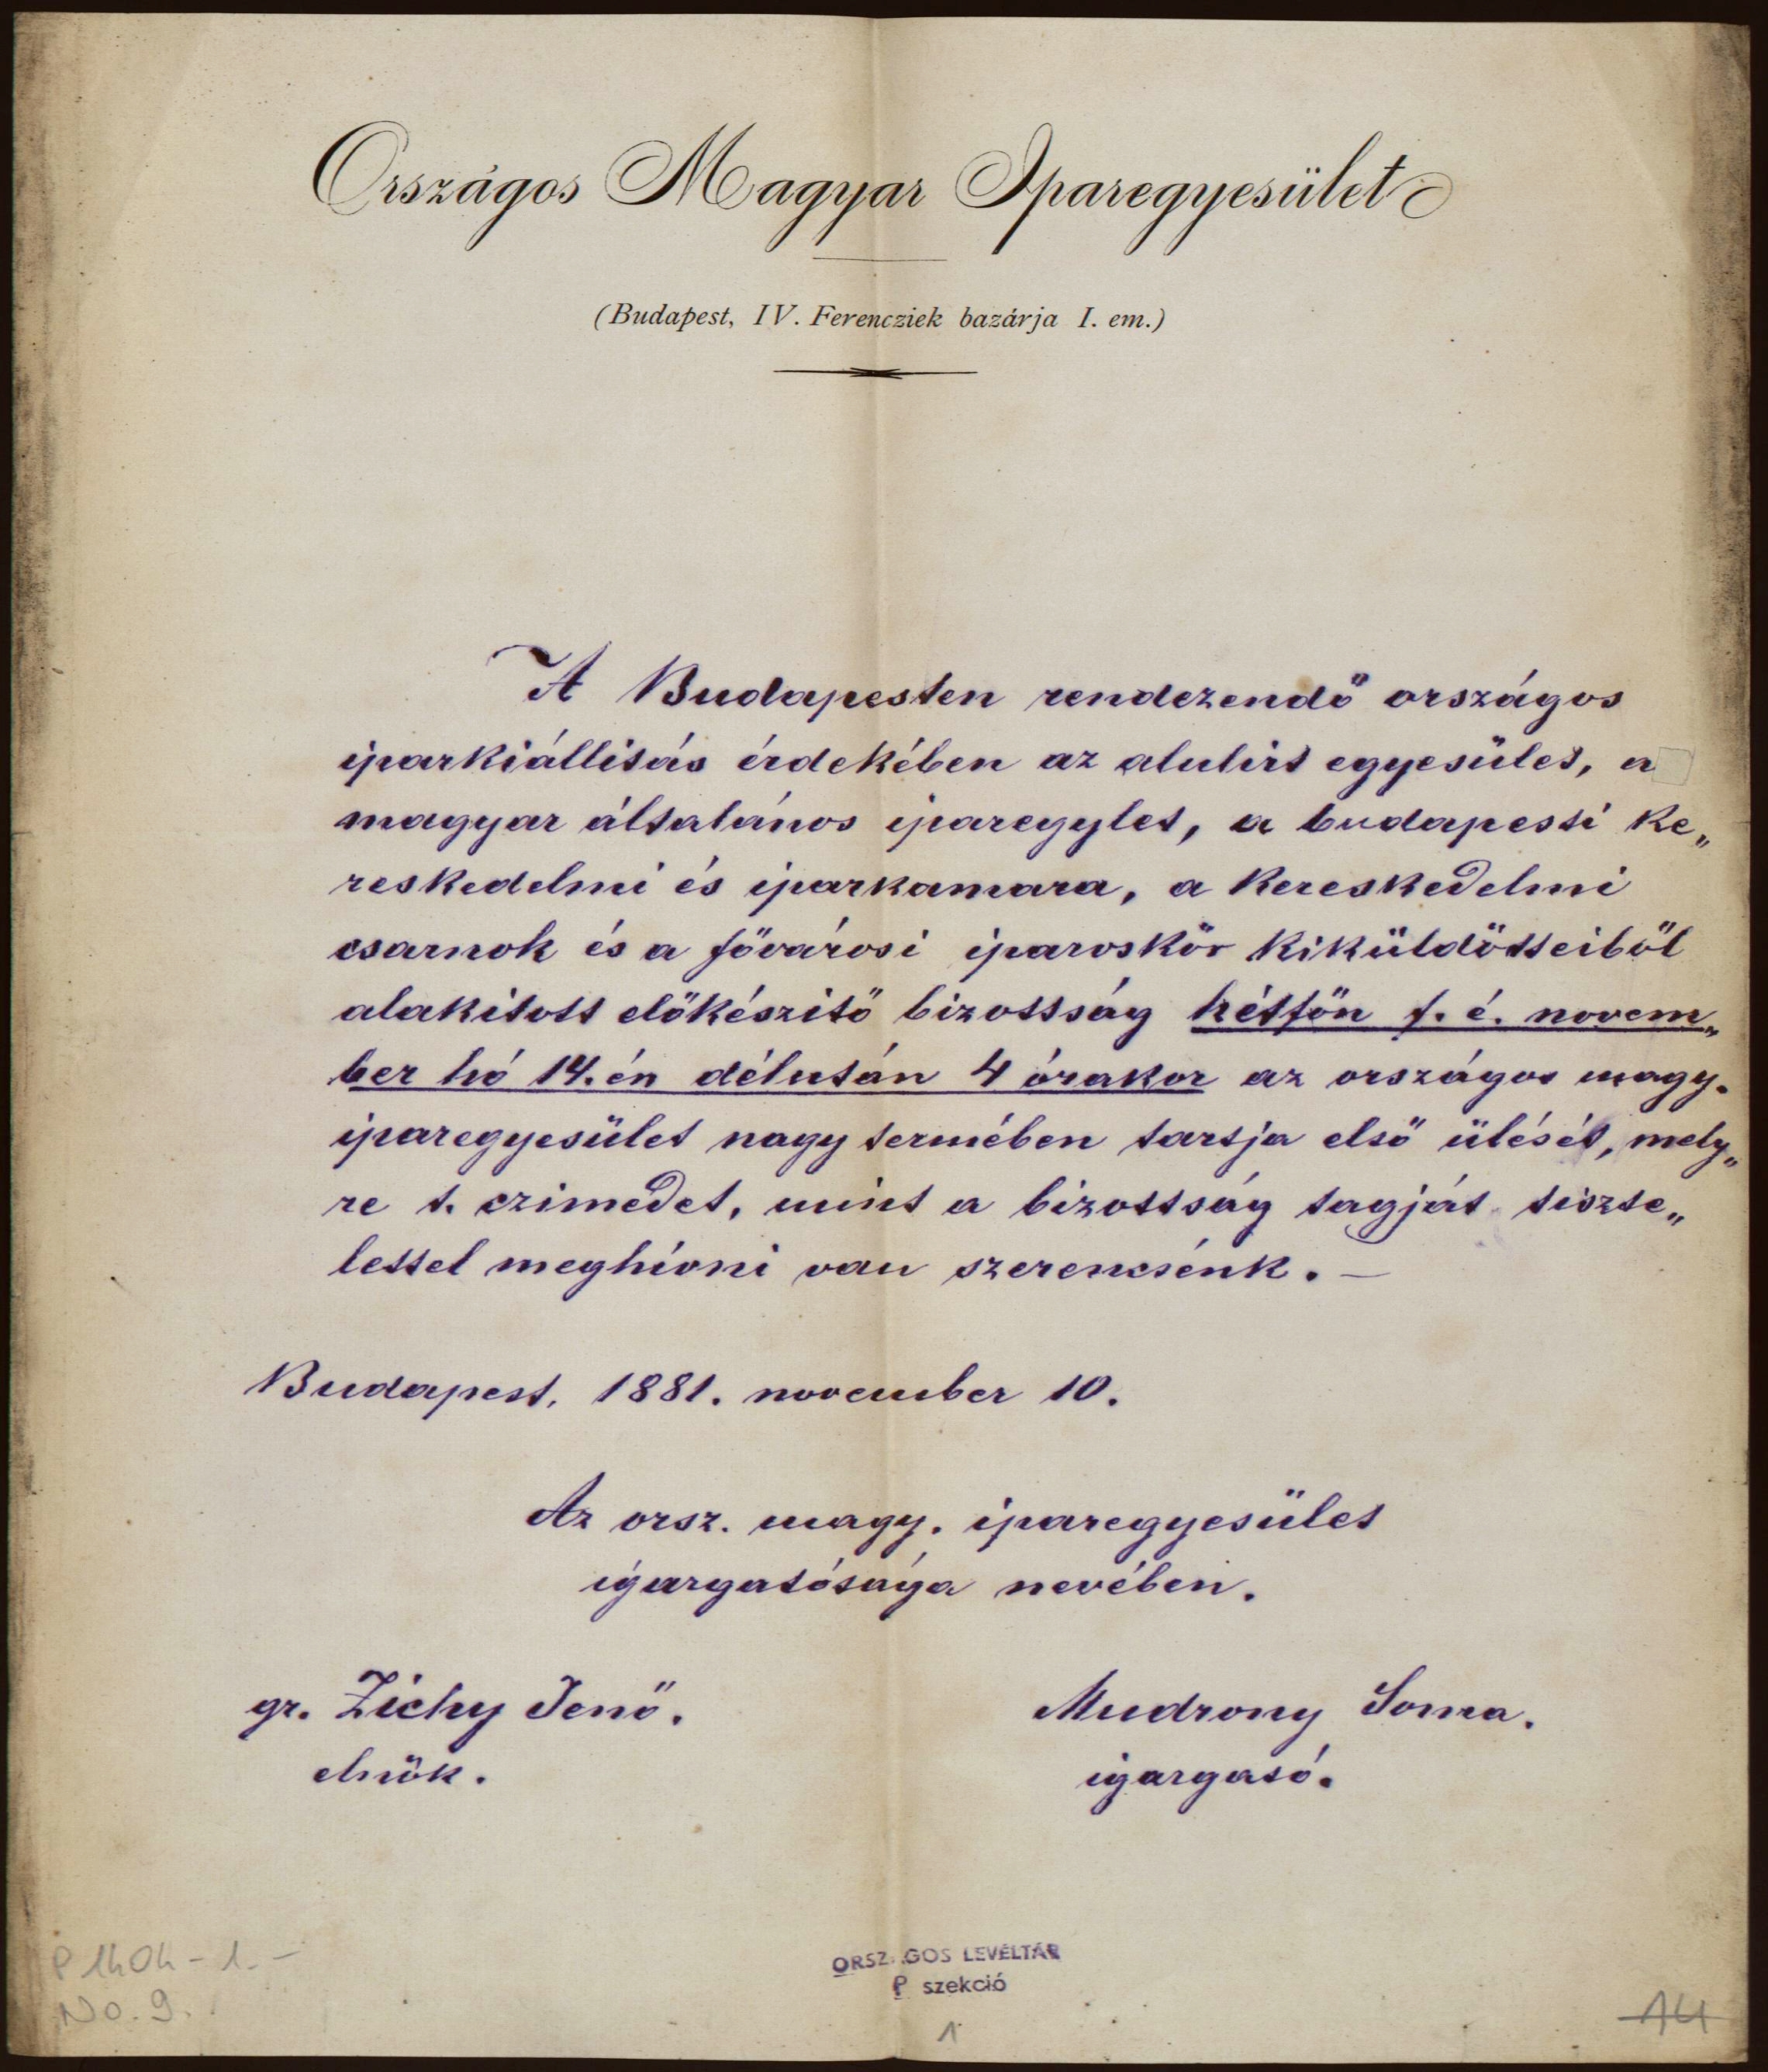 Országos Magyar Iparegyesület
(Budapest, IV. Ferencziek bazárja I. em.)
A Budapesten rendezendő országos
iparkiállitás érdekében az alulirt egyesület, a
magyar általános iparegylet, a budapesti ke„
reskedelmi és iparkamara, a kereskedelmi
csarnok és a fővárosi iparoskör kiküldötteiből
alakitott előkészitő bizottság hétfőn f. é. novem„
ber hó 14.én délután 4 órakor az országos magy.
iparegyesület nagy termében tartja első ülését, mely„
re t. czimedet, mint a bizottság tagját tiszte„
lettel meghívni van szerencsénk. —
Budapest, 1881. november 10.
Az orsz. magy. iparegyesület
igazgatósága nevében.
gr. Zichy Jenő.
elnök.
Mudrony Soma.
igazgató.
P 1404 - 1. -
No. 9.
ORSZÁGOS LEVÉLTÁR
P szekció
1
14